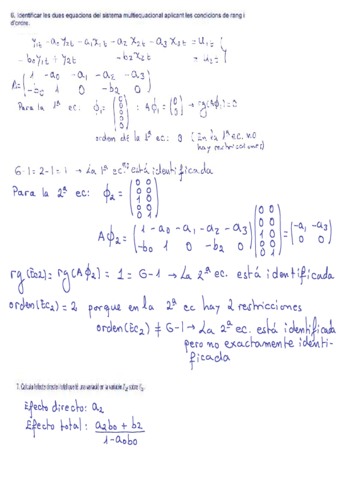 6. Identificar les dues equacions del sistema multiequacional aplicant les condicions de rang i
d'ordre.
y₁t - a₀y₂t - a₁x₁t - a₂x₂t - a₃x₃t = u₁t
-b₀y₁t + y₂t - b₂x₂t = u₂t
A = (1 -a₀ -a₁ -a₂ -a₃
-b₀ 1 0 -b₂ 0)
Para la 1ª ec: ϕ₁ = (0 0 0 0 0) : Aϕ₁ = (0 0) → rg(Aϕ₁) = 0
orden de la 1ª ec: 0 (En la 1ª ec. no
hay restricciones)
G-1 = 2-1 = 1 → La 1ª ec. no está identificada
Para la 2ª ec: ϕ₂ = (0 0
0 0
1 0
0 0
0 1)
Aϕ₂ = (1 -a₀ -a₁ -a₂ -a₃
-b₀ 1 0 -b₂ 0) (0 0
0 0
1 0
0 0
0 1) = (-a₁ -a₃
0 0)
rg(Ec2) = rg(Aϕ₂) = 1 = G-1 → La 2ª ec. está identificada
orden(Ec2) = 2 porque en la 2ª ec hay 2 restricciones
orden(Ec2) ≠ G-1 → La 2ª ec. está identificada
pero no exactamente identi-
ficada
Efecto directo: a₂
Efecto total: (a₂b₀ + b₂)/(1-a₀b₀)